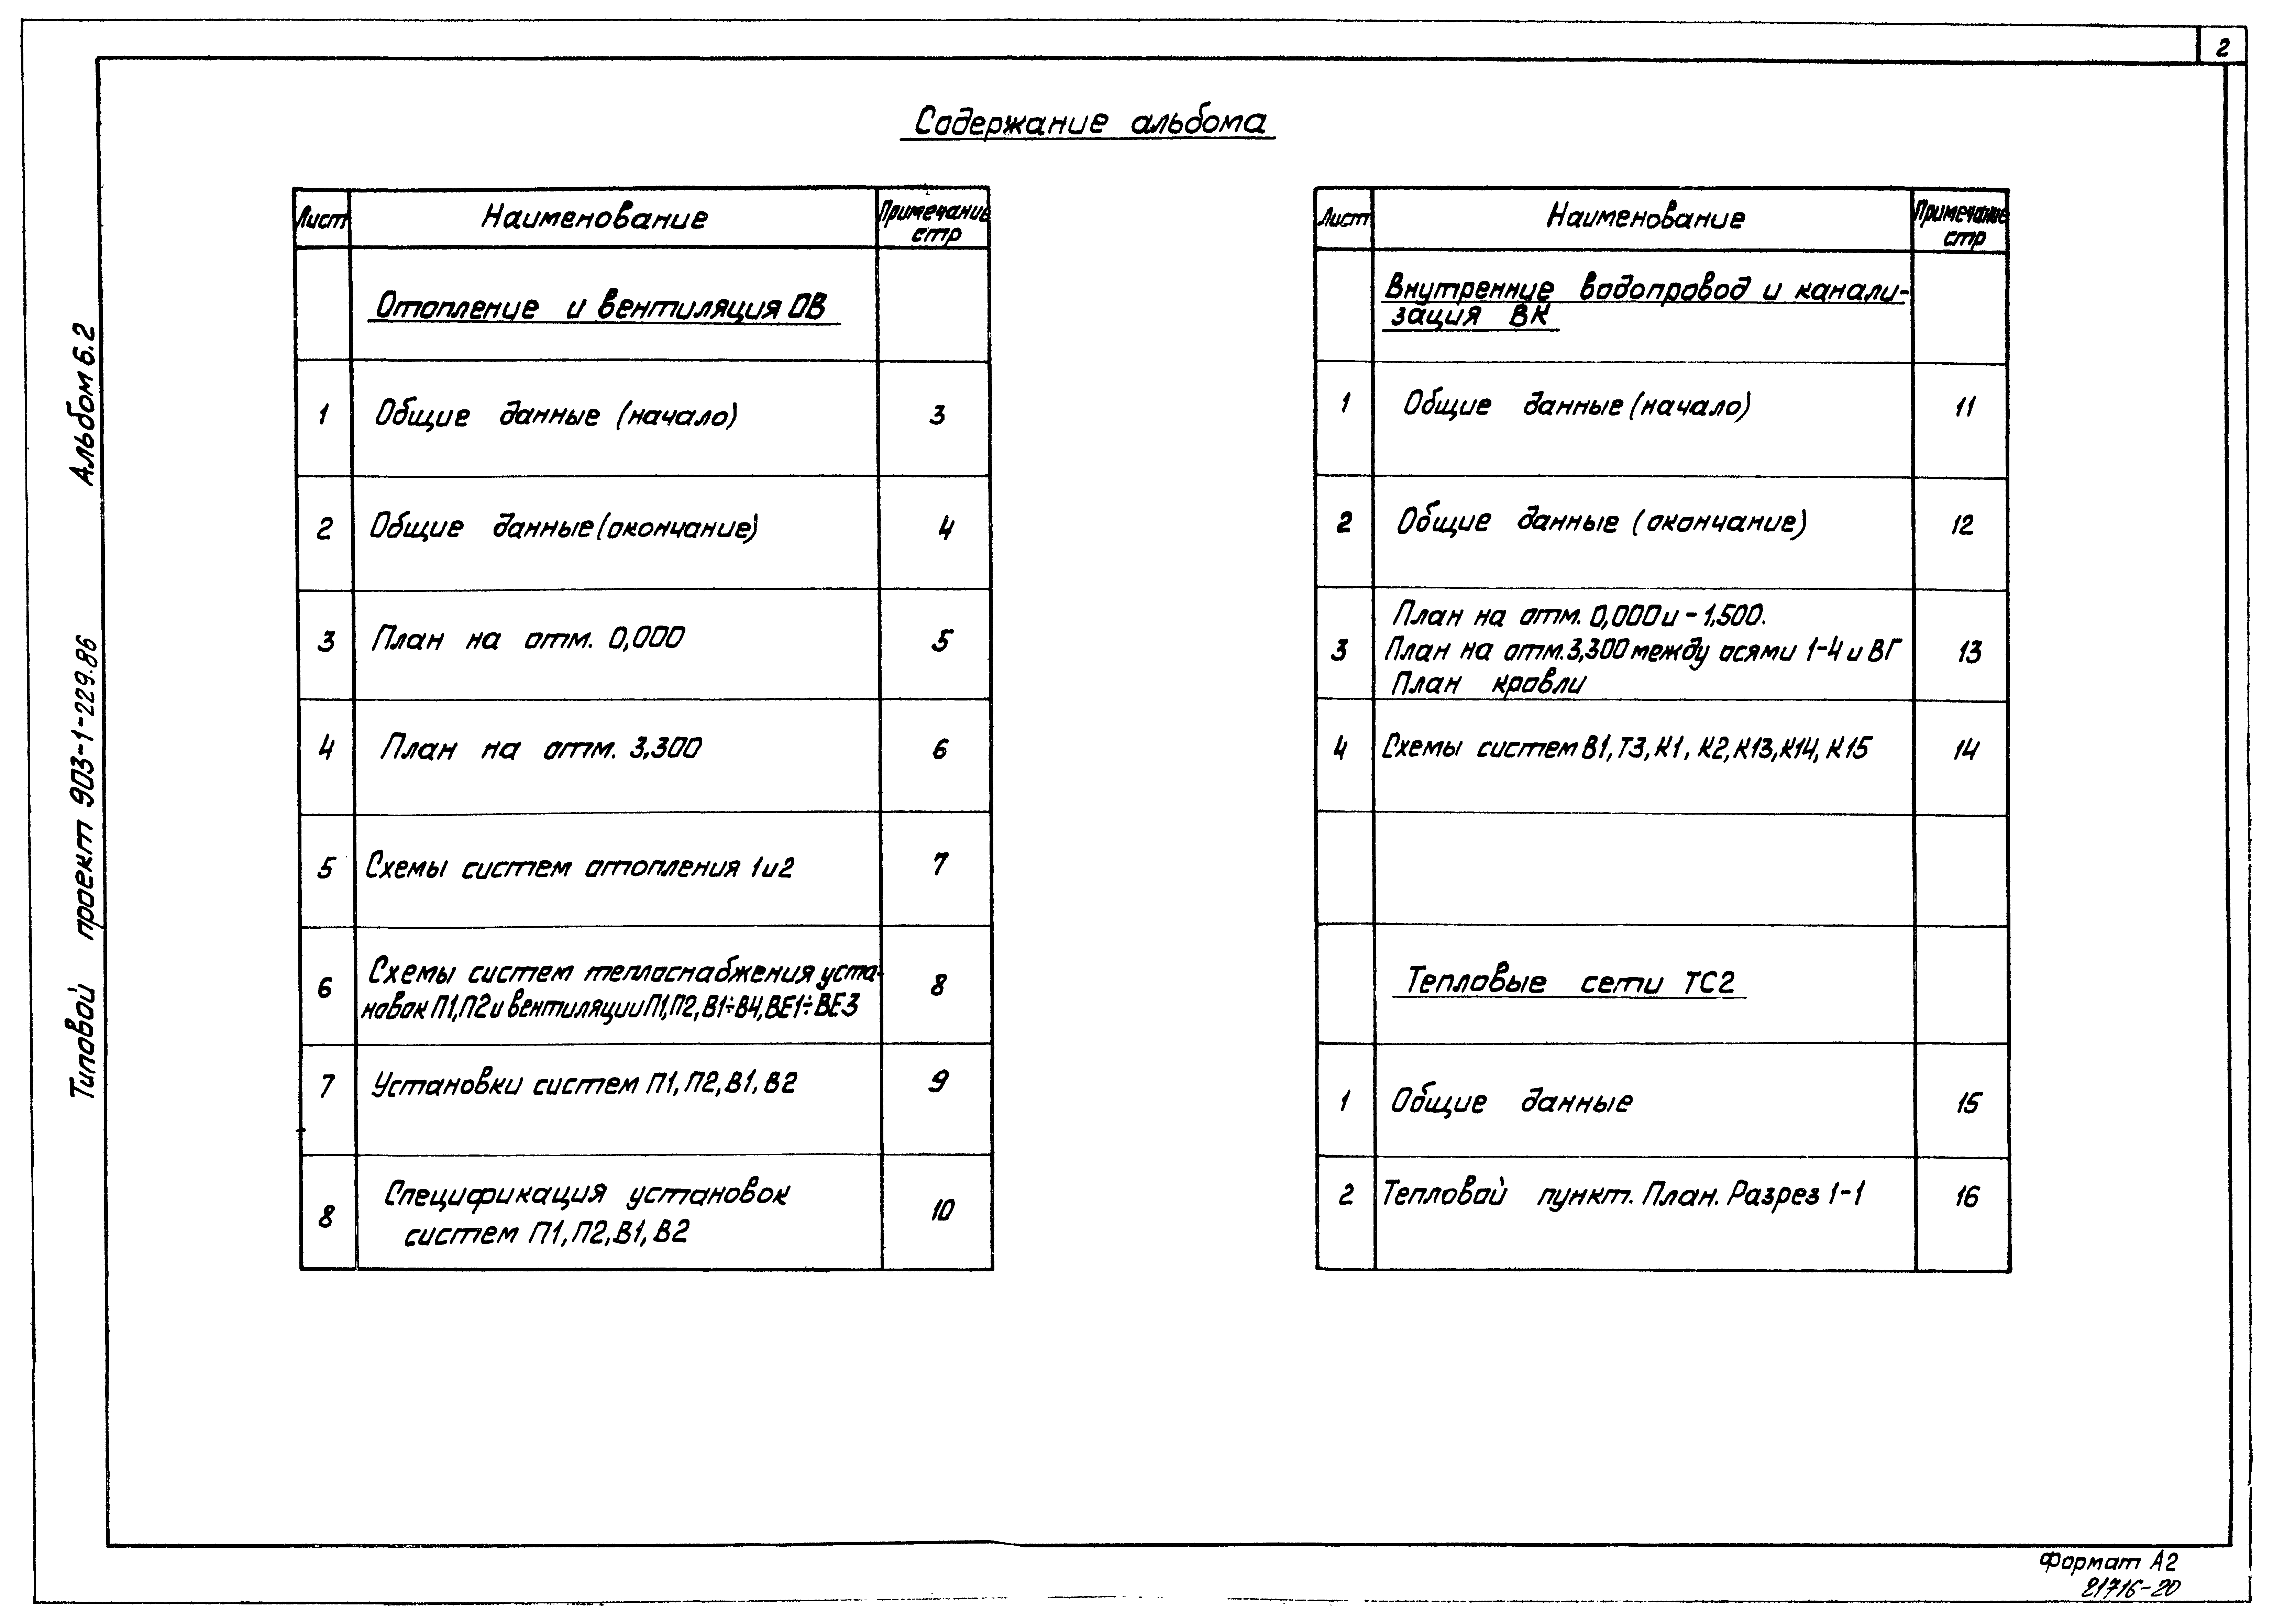 2
Содержание альбома
Альбом 6.2
Типовой проект 903-1-229.86
Лист Наименование Примечание
стр
Отопление и вентиляция ОВ
1 Общие данные (начало) 3
2 Общие данные (окончание) 4
3 План на отм. 0,000 5
4 План на отм. 3,300 6
5 Схемы систем отопления 1и2 7
6 Схемы систем теплоснабжения уста- 8
новок П1,П2 и вентиляции П1,П2, В1÷В4, ВЕ1÷ВЕ3
7 Установки систем П1, П2, В1, В2 9
8 Спецификация установок 10
систем П1, П2, В1, В2
Лист Наименование Примечание
стр
Внутренние водопровод и канали-
зация ВК
1 Общие данные (начало) 11
2 Общие данные (окончание) 12
План на отм. 0,000 и -1,500.
3 План на отм. 3,300 между осями 1-4 и ВГ 13
План кровли
4 Схемы систем В1, Т3, К1, К2, К13, К14, К15 14
Тепловые сети ТС2
1 Общие данные 15
2 Тепловой пункт. План. Разрез 1-1 16
Формат А2
21716-20